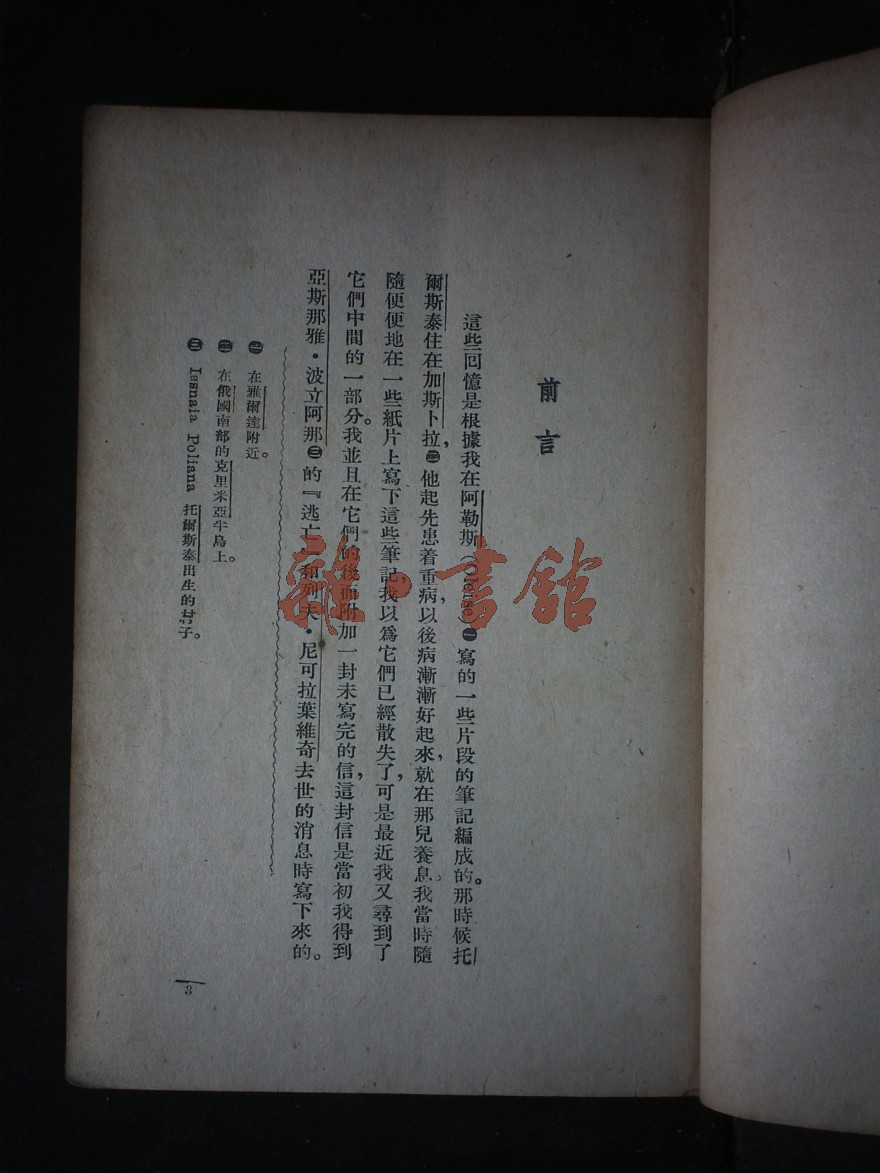 前言
這些回憶是根據我在阿勒斯(Olense)㊀寫的一些片段的筆記編成的。那時候托
爾斯泰住在加斯卜拉，㊁他起先患着重病，以後病漸漸好起來，就在那兒養息。我當時隨
隨便便地在一些紙片上寫下這些筆記，我以爲它們已經散失了，可是最近我又尋到了
它們中間的一部分。我並且在它們的後面附加一封未寫完的信，這封信是當初我得到
亞斯那雅·波立阿那㊂的『逃亡』和列夫·尼可拉葉維奇去世的消息時寫下來的。
㊀ 在雅爾達附近。
㊁ 在俄國南部的克里米亞半島上。
㊂ Iasnaia Poliana 托爾斯泰出生的村子。
3
雜·書館